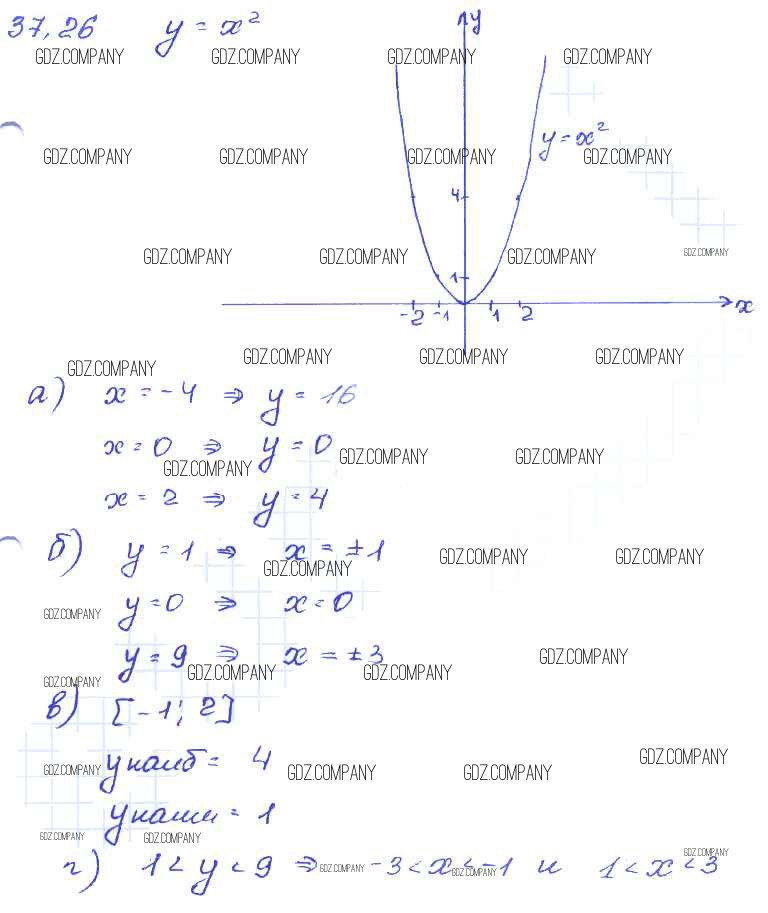 37.26 y = x²
y
GDZ.COMPANY GDZ.COMPANY GDZ.COMPANY GDZ.COMPANY
y = x²
GDZ.COMPANY GDZ.COMPANY GDZ.COMPANY GDZ.COMPANY
4
GDZ.COMPANY GDZ.COMPANY GDZ.COMPANY GDZ.COMPANY
1
-2 -1 1 2 x
GDZ.COMPANY GDZ.COMPANY GDZ.COMPANY GDZ.COMPANY
а) x = -4 ⇒ y = 16
x = 0 ⇒ y = 0
GDZ.COMPANY GDZ.COMPANY GDZ.COMPANY
x = 2 ⇒ y = 4
б) y = 1 ⇒ x = ±1
GDZ.COMPANY GDZ.COMPANY GDZ.COMPANY
y = 0 ⇒ x = 0
GDZ.COMPANY
y = 9 ⇒ x = ±3
GDZ.COMPANY GDZ.COMPANY GDZ.COMPANY GDZ.COMPANY
в) [-1; 2]
yнаиб = 4
GDZ.COMPANY GDZ.COMPANY GDZ.COMPANY GDZ.COMPANY
yнаим = 1
GDZ.COMPANY GDZ.COMPANY GDZ.COMPANY
г) 1 < y < 9 ⇒ -3 < x < -1 и 1 < x < 3
GDZ.COMPANY GDZ.COMPANY